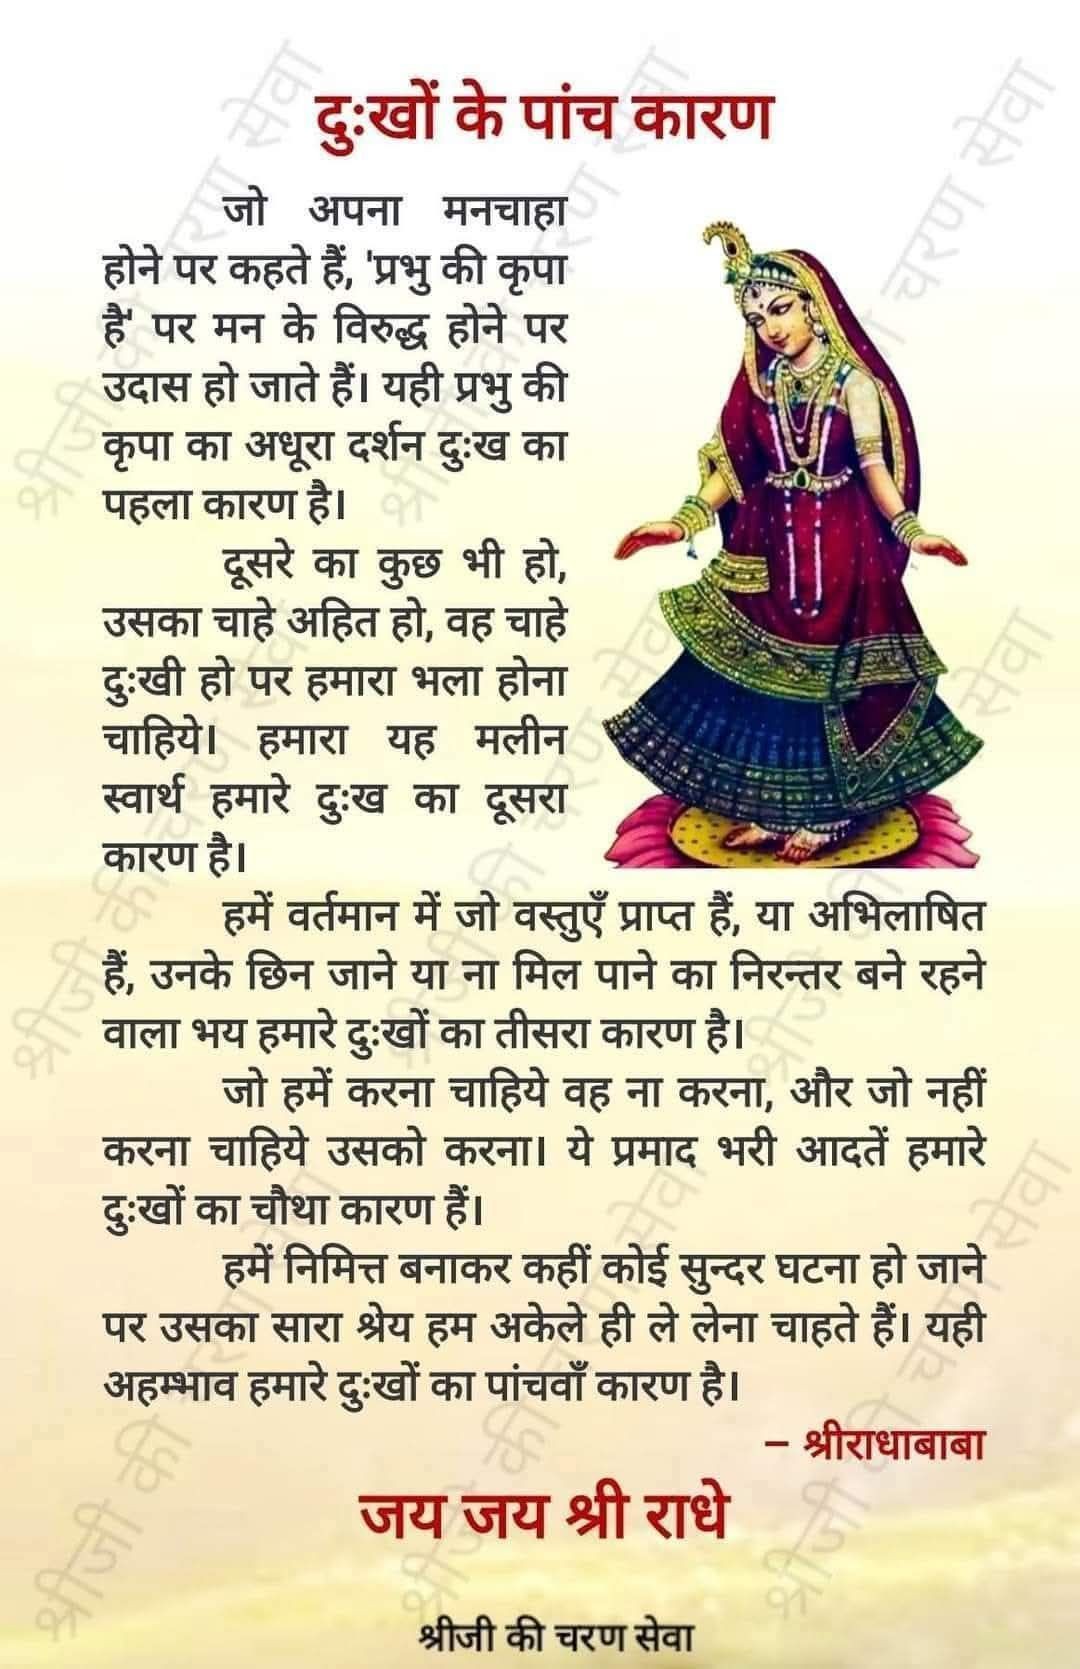 दुःखों के पांच कारण
जो अपना मनचाहा
होने पर कहते हैं, 'प्रभु की कृपा
है' पर मन के विरुद्ध होने पर
उदास हो जाते हैं। यही प्रभु की
कृपा का अधूरा दर्शन दुःख का
पहला कारण है।
दूसरे का कुछ भी हो,
उसका चाहे अहित हो, वह चाहे
दुःखी हो पर हमारा भला होना
चाहिये। हमारा यह मलीन
स्वार्थ हमारे दुःख का दूसरा
कारण है।
हमें वर्तमान में जो वस्तुएँ प्राप्त हैं, या अभिलाषित
हैं, उनके छिन जाने या ना मिल पाने का निरन्तर बने रहने
वाला भय हमारे दुःखों का तीसरा कारण है।
जो हमें करना चाहिये वह ना करना, और जो नहीं
करना चाहिये उसको करना। ये प्रमाद भरी आदतें हमारे
दुःखों का चौथा कारण हैं।
हमें निमित्त बनाकर कहीं कोई सुन्दर घटना हो जाने
पर उसका सारा श्रेय हम अकेले ही ले लेना चाहते हैं। यही
अहम्भाव हमारे दुःखों का पांचवाँ कारण है।
– श्रीराधाबाबा
जय जय श्री राधे
श्रीजी की चरण सेवा